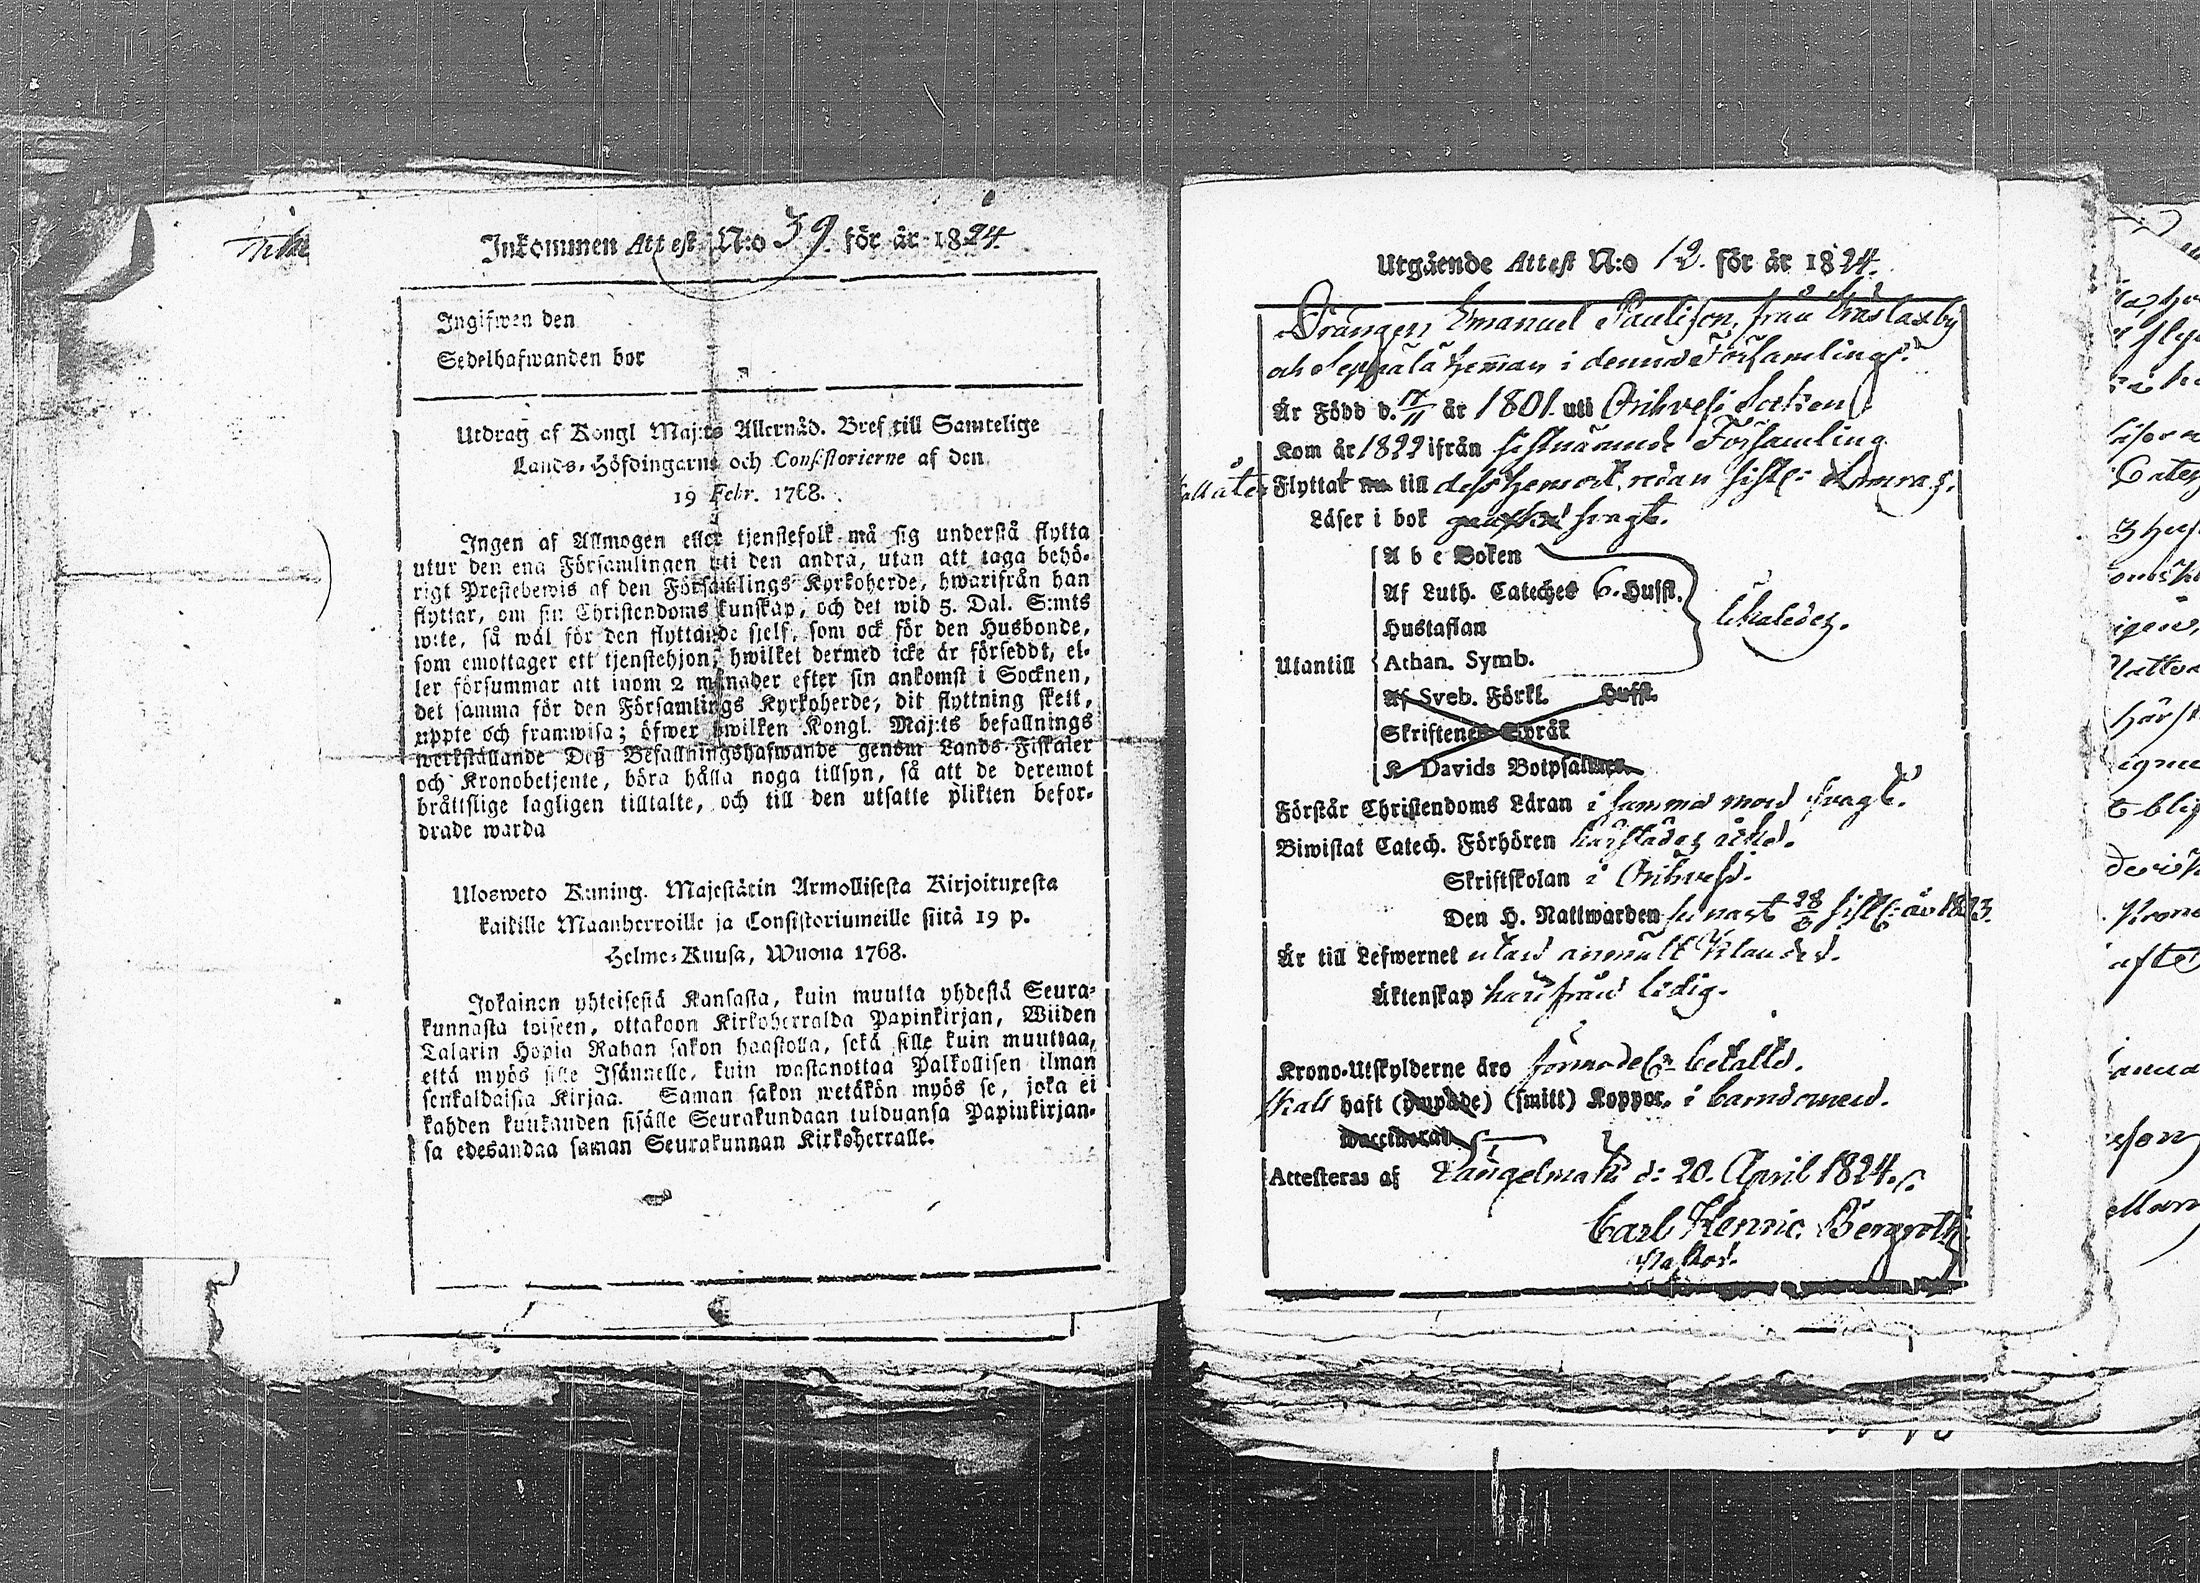 Inkommen Attest N:o 39 för år 1824
Ingifwen den
Sedelhafwanden bor
Utdrag af Kongl Maj:ts Allernåd. Bref till Samtelige
Lands-Höfdingarne och Consistorierne af den
19 Febr. 1768.
Ingen af Allmogen eller tjenstefolk må sig understå flytta
utur den ena Församlingen uti den andra, utan att taga behö-
rigt Prestebewis af den Församlings Kyrkoherde, hwarifrån han
flyttar, om sin Christendoms kunskap, och det wid 5. Dal. S:mts
wite, så wäl för den flyttande sjelf, som ock för den Husbonde,
som emottager ett tjenstehjon, hwilket dermed icke är försedt, el-
ler försummar att inom 2 månader efter sin ankomst i Socknen,
det samma för den Församlings Kyrkoherde, dit flyttning skett,
uppte och framwisa; öfwer hwilken Kongl. Maj:ts befallnings
werkställande Deß Befallningshafwande genom Lands-Fiskaler
och Kronobetjente, böra hålla noga tillsyn, så att de deremot
bråttslige lagligen tilltalte, och till den utsatte plikten befor-
drade warda
Ulosweto Kuning. Majestätin Armollisesta Kirjoituxesta
kaikille Maanherroille ja Consistoriumeille siitä 19 p.
Helme-Kuusa, Wuona 1768.
Jokainen yhteisestä Kansasta, kuin muutta yhdestä Seura-
kunnasta toiseen, ottakoon Kirkoherralda Papinkirjan, Wiiden
Talarin Hopia Rahan sakon haastolla, sekä sille kuin muuttaa,
että myös sille Isännelle, kuin wastanottaa Palkollisen ilman
senkaldaisia Kirjaa. Saman sakon wetäkön myös se, joka ei
kahden kuukauden sisälle Seurakundaan tulduansa Papinkirjan-
sa edesandaa saman Seurakunnan Kirkoherralle.
Utgående Attest N:o 12. för år 1824.
Drängen Emanuel Paulisson, från
och Seppälä Hemman i denna Församling.
Är Född d. 17/11 år 1801. uti Orihvesi Socken.
Kom år 1822 ifrån sistnämnde Församling
Flyttat nu till dess hemort redan sistl:
Läser i bok svagt.
A b c Boken
Af Luth. Cateches 6. Hufst.
Hustaflan
likaledes.
Utantill Athan. Symb.
Af Sveb. Förkl. Hufst.
Skriftenes Språk
K Davids Botpsalmer.
Förstår Christendoms Läran i samma mon svagt.
Biwistat Catech. Förhören härstädes
Skriftskolan i Orihvesi.
Den H. Nattwarden senast 28/6 sistl: år 1823.
Är till Lefwernet utan anmält klander.
Äktenskap härifrån ledig.
Krono-Utskylderne äro förmodel:n betalte.
Skall haft (ympade) (smitt) Koppor, i barndomen.
waccinerad
Attesteras af Längelmäki d: 20. April 1824.
Carl Henric Bergroth
Pastor.